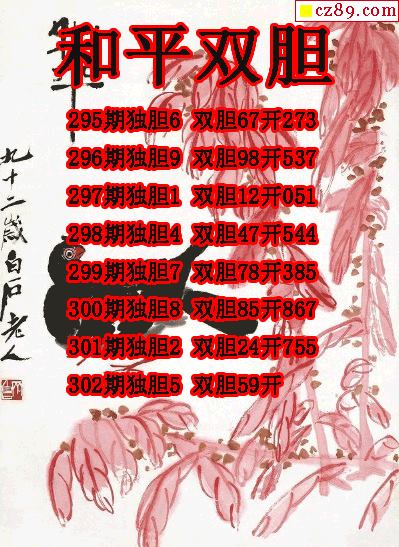 cz89.com
和平双胆
295期独胆6 双胆67开273
296期独胆9 双胆98开537
297期独胆1 双胆12开051
298期独胆4 双胆47开544
299期独胆7 双胆78开385
300期独胆8 双胆85开867
301期独胆2 双胆24开755
302期独胆5 双胆59开
九十二岁白石老人